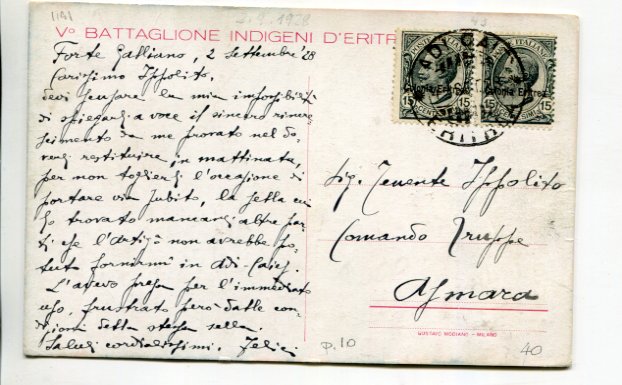 1191
2.9.1928
43
V° BATTAGLIONE INDIGENI D'ERITR
Forte Galliano, 2 Settembre '28
Carissimo Ippolito,
devi scusare la mia impossibilità
di spiegarti a voce il sincero rincre
scimento da me provato nel do
verti restituire, in mattinata,
per non toglierti l'occasione di
portare via subito, la sella cui
ho trovato mancarsi altre par
ti che l'artigº non avrebbe po
tuto fornirmi in Adi-Caieh.
L'avevo presa per l'immediato
uso, frustrato però dalle con
dizioni della stessa sella.
Saluti cordialissimi. Felici
POSTE ITALIANE
Colonia Eritrea
15 15
15
ADI CAIE
ERITREA
Sig. Tenente Ippolito
Comando Truppe
Asmara
GUSTAVO MODIANO - MILANO
p. 10
40